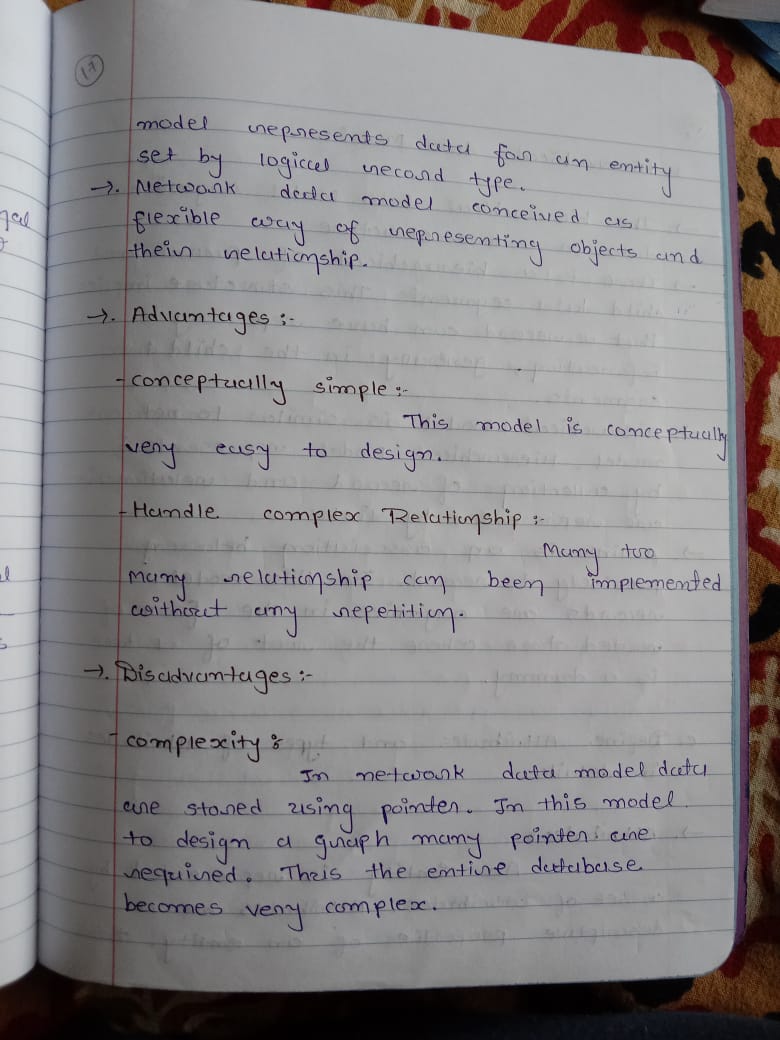 17
model represents data for an entity
set by logical record type.
→. Network data model conceived as
flexible way of representing objects and
their relationship.
→. Advantages :-
- conceptually simple :-
This model is conceptually
very easy to design.
- Handle complex Relationship :-
Many too
many relationship can been implemented
without any repetition.
→. Disadvantages :-
- complexity :
In network data model data
are stored using pointer. In this model
to design a graph many pointer are
required. Thus the entire database
becomes very complex.